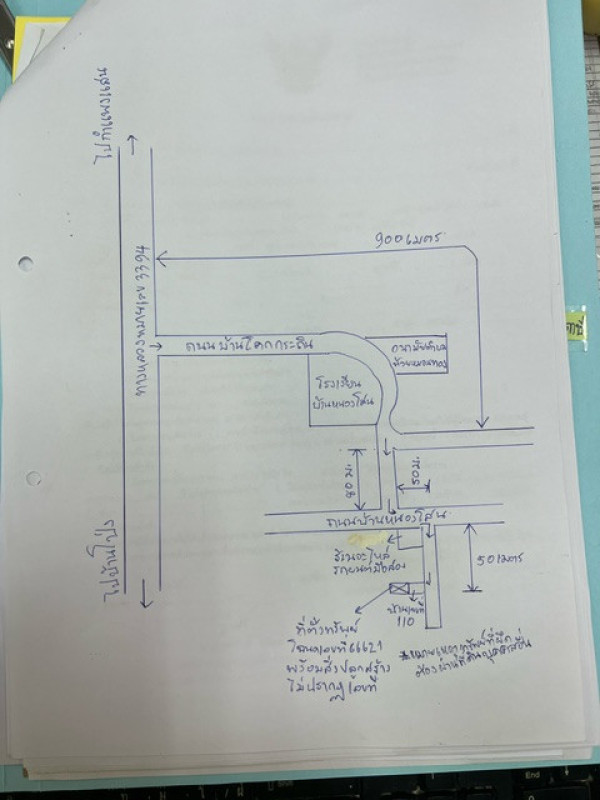 ไปกำแพงแสน
900 เมตร
ทางหลวงหมายเลข 3394
ถนนบ้านโคกกระถิน
อนามัยตำบล
ห้วยหมอนทอง
โรงเรียน
บ้านหนองโสน
80 ม.
50 ม.
ถนนบ้านหนองโสน
ไปบ้านโป่ง
ร้านอะไหล่
รถยนต์มือสอง
50 เมตร
บ้านเลขที่
110
ที่ตั้งทรัพย์
โฉนดเลขที่ 66621
พร้อมสิ่งปลูกสร้าง
ไม่ปรากฏเลขที่
*หมายเหตุทรัพย์ที่ยึด
ต้องผ่านที่ดินบุคคลอื่น